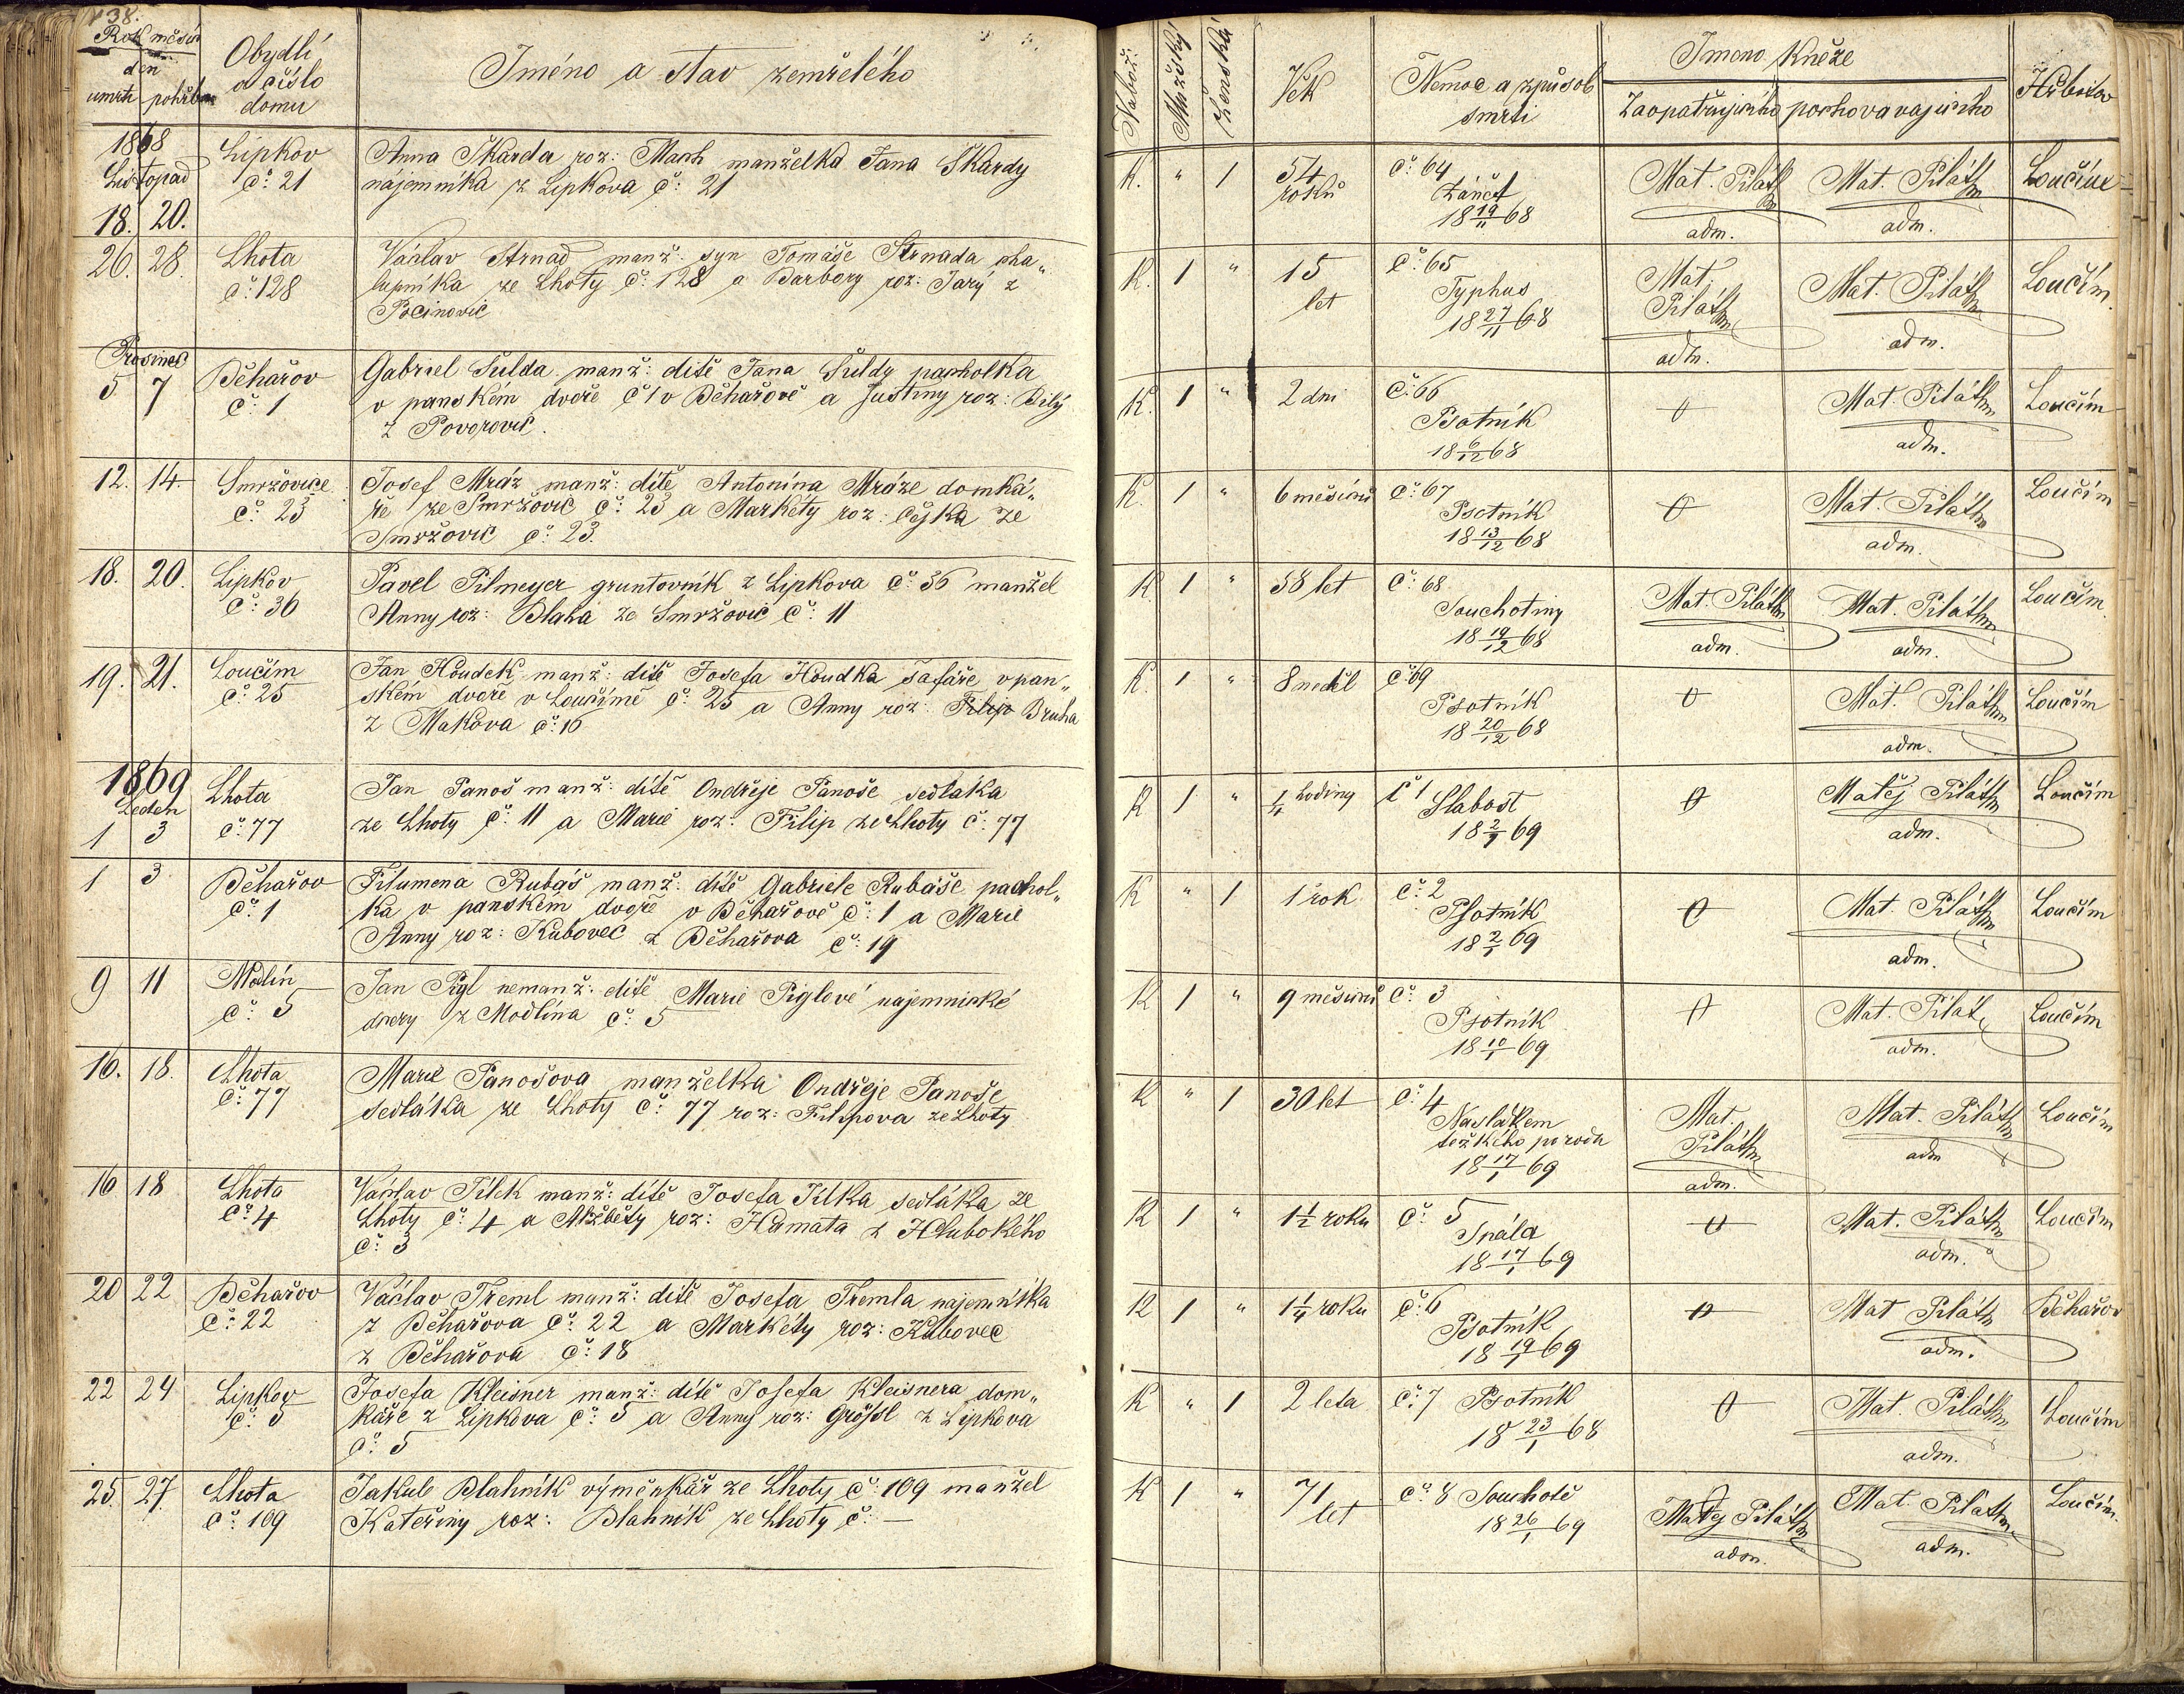 138.
Rok měsíc
den
úmrtí pohřbu
Obydlí
a číslo
domu
Jméno a stav zemřelého
1868
Listopad
18. 20.
Lipkov
č: 21
Anna Škarda roz: Mach manželka Jana Škardy
nájemníka z Lipkova č: 21
26. 28.
Lhota
č: 128
Václav Strnad manž: syn Tomáše Strnada cha„
lupníka ze Lhoty č: 128 a Barbory roz: Jarý z
Pocinovic
Prosinec
5 7
Běhařov
č: 1
Gabriel Šulda manž: dítě Jana Šuldy pacholka
v panském dvoře č 1 v Běhařově a Justiny roz: Bílý
z Povorovic.
12. 14.
Smržovice
č: 23
Josef Mráz manž: dítě Antonína Mráze domká„
ře ze Smržovic č: 23 a Markéty roz: Cejka ze
Smržovic č: 23.
18. 20.
Lipkov
č: 36
Pavel Pilmeyer gruntovník z Lipkova č: 36 manžel
Anny roz: Blaha ze Smržovic č: 11
19. 21.
Loučím
č: 25
Jan Houdek manž: dítě Josefa Houdka šafáře v pan„
ském dvoře v Loučímě č: 25 a Anny roz: Filip Bruha
z Makova č: 16
1869
Leden
1 3
Lhota
č: 77
Jan Panoš manž: dítě Ondřeje Panoše sedláka
ze Lhoty č: 11 a Marie roz: Filip ze Lhoty č: 77
1 3
Běhařov
č: 1
Filumena Rubáš manž: dítě Gabriele Rubáše pachol„
ka v panském dvoře v Běhařově č: 1 a Marie
Anny roz: Kubovec z Běhařova č: 19
9 11
Modlín
č: 5
Jan Pigl nemanž: dítě Marie Piglové najemnické
dcery z Modlína č: 5
16. 18.
Lhota
č: 77
Marie Panošova manželka Ondřeje Panoše
sedláka ze Lhoty č: 77 roz: Filipova ze Lhoty
16 18
Lhota
č: 4
Václav Jílek manž: dítě Josefa Jílka sedláka ze
Lhoty č: 4 a Alžběty roz: Hamata z Hlubokého
č: 3
20 22
Běhařov
č: 22
Václav Treml manž: dítě Josefa Tremla najemníka
z Běhařova č: 22 a Markéty roz: Kubovec
z Běhařova č: 18
22 24
Lipkov
č: 5
Josefa Kleisner manž: dítě Josefa Kleisnera dom„
káře z Lipkova č: 5 a Anny roz: Grössl z Lipkova
č: 5
25. 27.
Lhota
č: 109
Jakub Blahník výměnkář ze Lhoty č: 109 manžel
Kateřiny roz: Blahník ze Lhoty č: —
Nabož:
Mužský
Ženská
Věk
Nemoc a způsob
smrti
Jmeno Kněze
Zaopatřujícího pochovavajícího
Hřbitov
K. " 1 54
roků
č: 64
Zánět
18 19/11 68
Mat. Piláth
adm.
Mat. Piláth
adm.
Loučím
K. 1 " 15
let
č: 65
Typhus
18 27/11 68
Mat.
Piláth
adm.
Mat. Piláth
adm.
Loučím
K. 1 " 2 dni
č: 66
Psotník
18 6/12 68
Mat. Piláth
adm.
Loučím
K. 1 " 6 měsíců
č: 67
Psotník
18 13/12 68
Mat. Piláth
adm.
Loučím
K 1 " 58 let
č: 68
Souchotiny
18 19/12 68
Mat. Piláth
adm.
Mat. Piláth
adm.
Loučím
K. 1 " 8 neděl
č: 69
Psotník
18 20/12 68
Mat. Piláth
adm.
Loučím
K 1 " 1/4 hodiny
č 1
Slabost
18 2/1 69
Matěj Piláth
adm.
Loučím
K " 1 1 rok
č: 2
Psotník
18 2/1 69
Mat. Piláth
adm.
Loučím
K 1 " 9 měsíců
č: 3
Psotník
18 10/1 69
Mat. Pilát
adm.
Loučím
K " 1 30 let
č: 4
Následkem
težkého porodu
18 17/1 69
Mat.
Piláth
adm.
Mat. Piláth
adm
Loučím
K 1 " 1 1/2 roku
č: 5
Spála
18 17/1 69
Mat. Piláth
adm.
Loučím
K 1 " 1 1/4 roku
č: 6
Psotník
18 19/1 69
Mat Piláth
adm.
Běhařov
K " 1 2 leta
č: 7 Psotník
18 23/1 68
Mat. Piláth
adm.
Loučím
K 1 " 71
let
č: 8 Souchotě
18 26/1 69
Matěj Piláth
adm.
Mat. Piláth
adm.
Loučím.